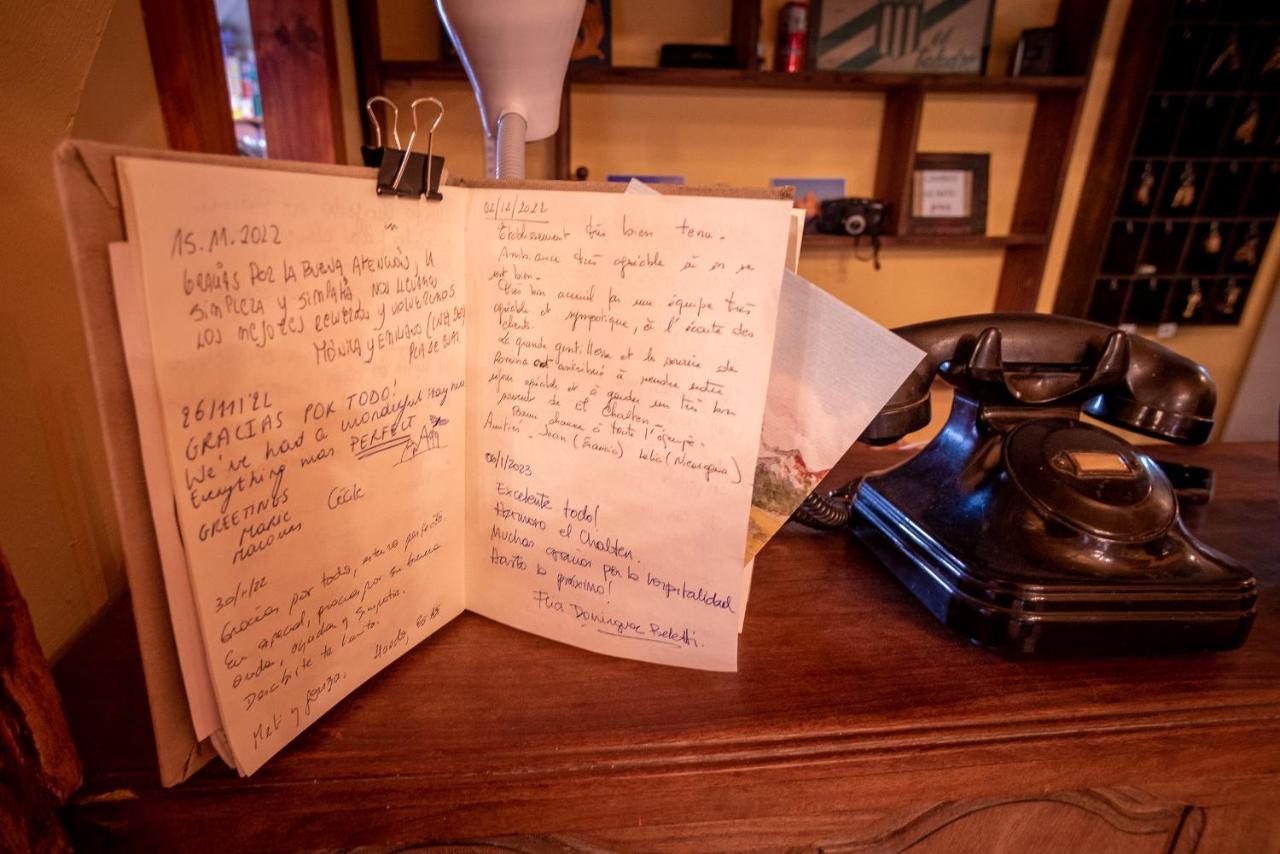 15.11.2022
GRACIAS POR LA BUENA ATENCIÓN, LA
SIMPLEZA Y SIMPATÍA, NOS LLEVAMOS
LOS MEJORES RECUERDOS Y VOLVEREMOS
MÓNICA Y EMILIANO
26/11/22
GRACIAS POR TODO!
We've had a wonderful stay here
Everything was PERFECT
GREETINGS
MARIC Cécile
30/11/22
Gracias por todo, estuvo perfecto.
En especial, gracias por su buena
onda, ayudar y simpatía.
02/12/2022
Etablissement très bien tenu.
Ambiance très agréable où on se
sent bien.
Très bon accueil par une équipe très
agréable et sympatique, à l'écoute des
clients.
La grande gentillesse et le sourire de
Romina ont contribué à rendre notre
séjour agréable et à garder un très bon
souvenir de el Chalten.
Bonne chance à toute l'équipe.
Amitiés. Jean (Francia) (Nicaragua)
06/1/2023
Excelente todo!
Hermoso el Chalten.
Muchas gracias por la hospitalidad
Hasta la próxima!